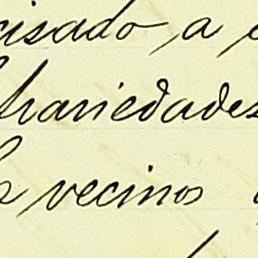 cisado, a
trariedades
vecinos